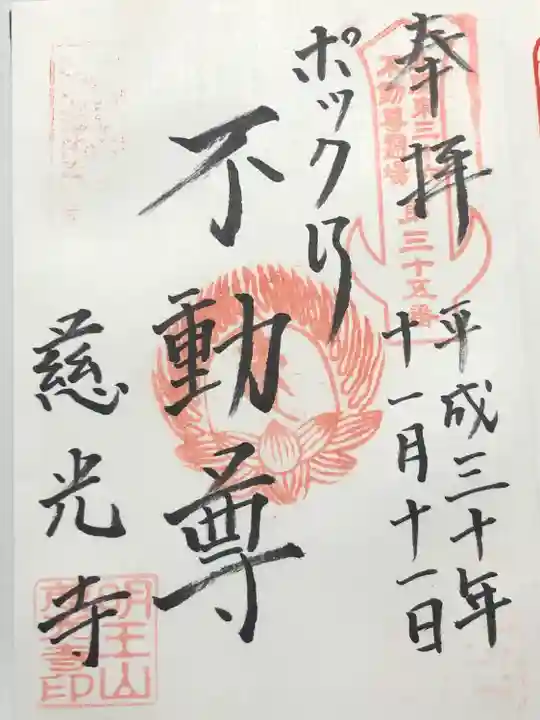 奉拝
平成三十年
十一月十一日
ポックリ
不動尊
慈光寺
東三
不動尊霊場
第三十五番
明王山
慈光寺印